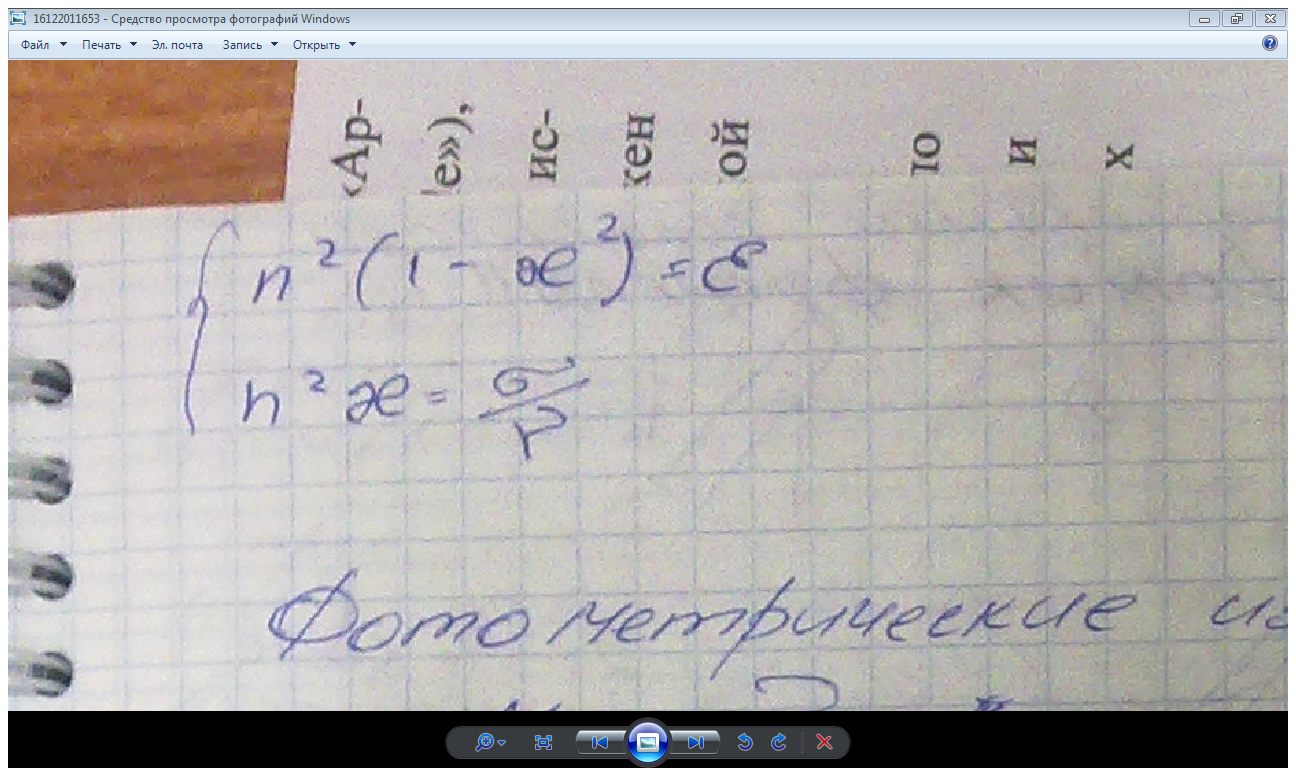 16122011653 - Средство просмотра фотографий Windows
Файл Печать Эл. почта Запись Открыть
‹Ар-
е»),
ис-
ен
ой
ю
и
х
n²(1 - æ²) = ε
n² æ = σ/ν
Фотометрические из